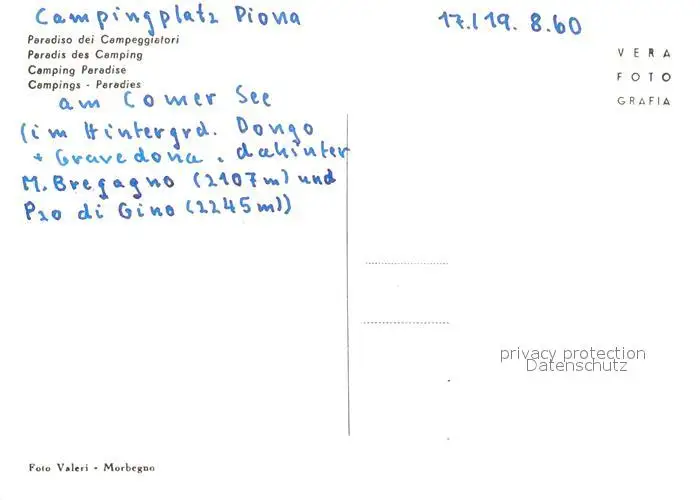 Campingplatz Piona
17./19. 8.60
Paradiso dei Campeggiatori
Paradis des Camping
Camping Paradise
Campings - Paradies
VERA
FOTO
GRAFIA
am Comer See
(im Hintergrd. Dongo
+ Gravedona, dahinter
M. Bregagno (2107m) und
Pzo di Gino (2245m))
privacy protection
Datenschutz
Foto Valeri - Morbegno